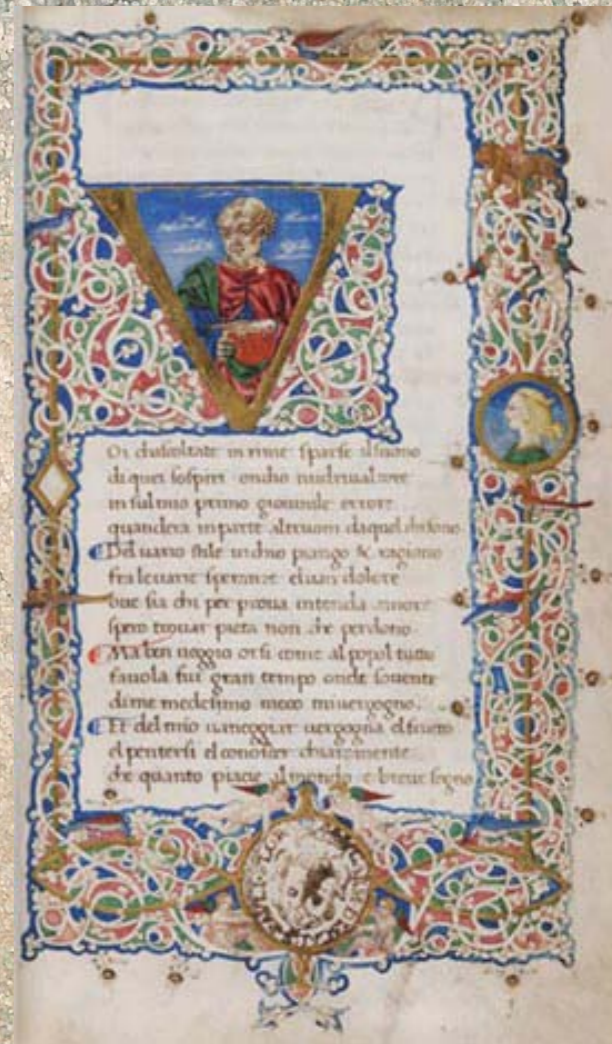 V
Oi chascoltate in rime sparse ilsuono
di quei sospiri ondio nudriualcore
in sulmio primo giouinile errore
quandera inparte altruom daquel chisono
Del uario stile inchio piango & ragiono
fra leuane speranze eluan dolore
oue sia chi per proua intenda amore
spero trouar pieta non che perdono
Ma ben ueggio or si come al popol tutto
fauola fui gran tempo onde souente
dime medesimo meco miuergogno
Et del mio uaneggiar uergogna elfructo
elpentersi elconoscer chiaramente
che quanto piace almondo e breue sogno